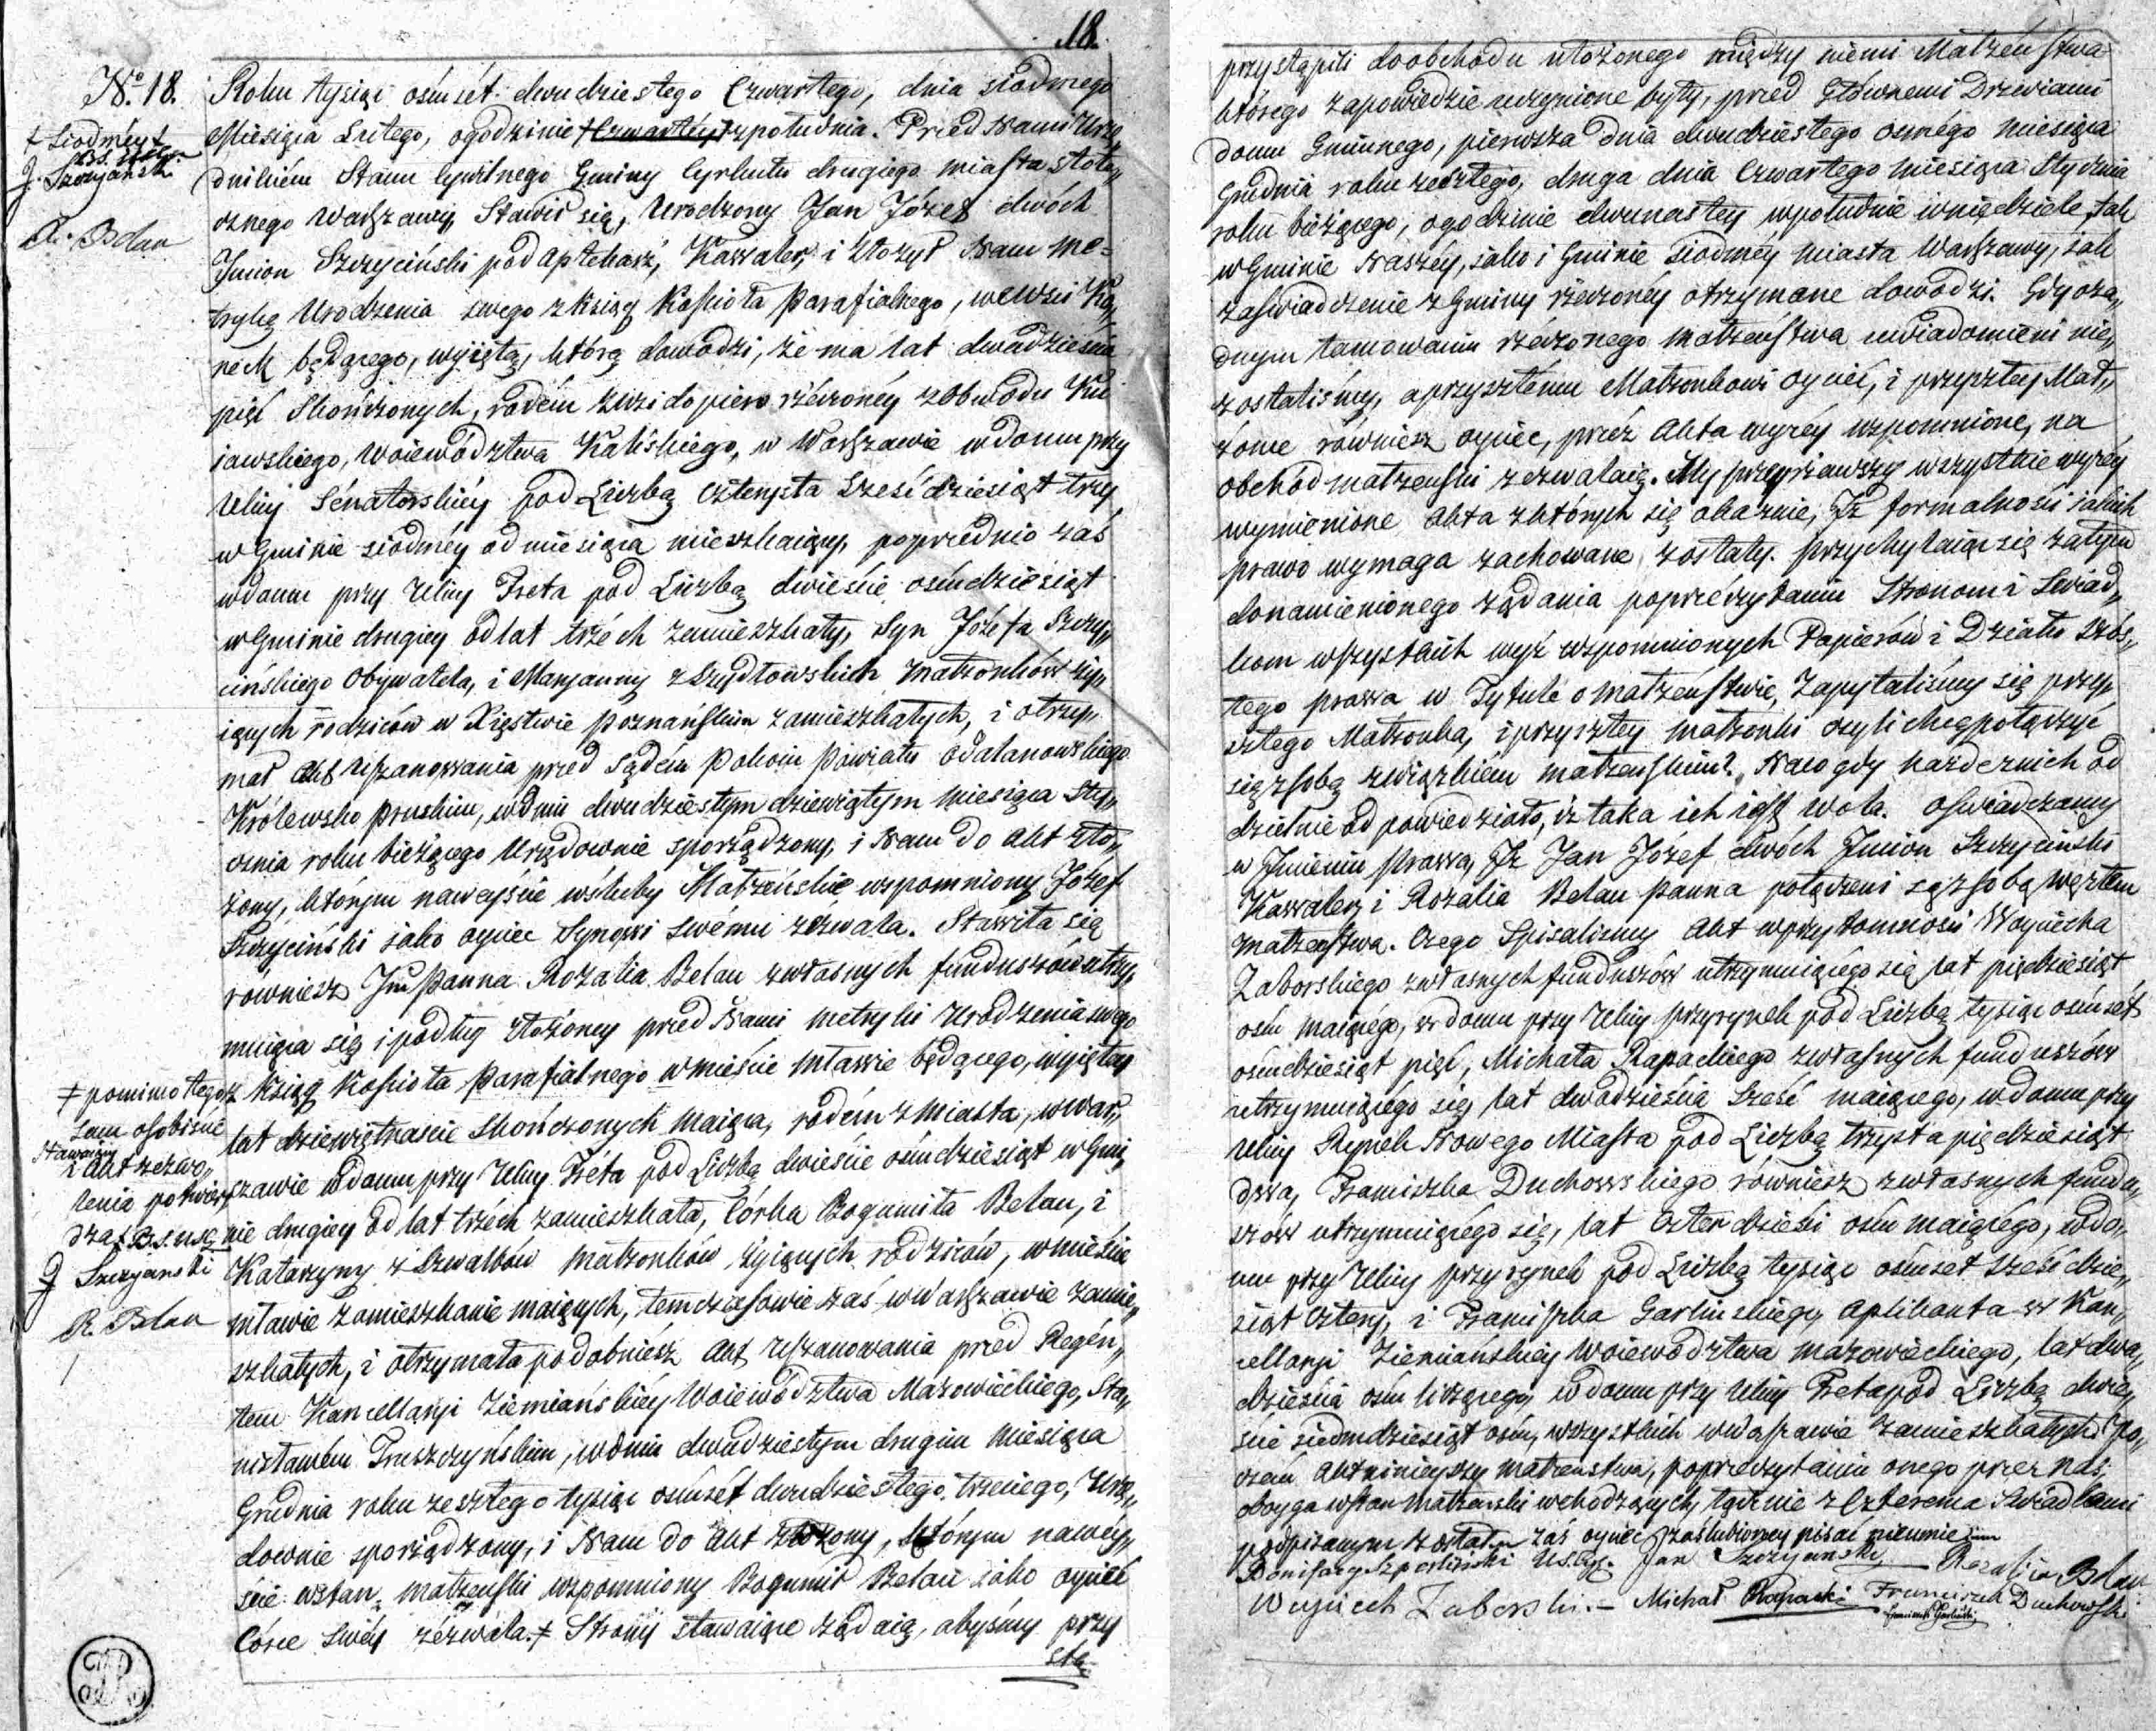 18.
No. 18.
+ Siodméy +
J. Szczycinski
R. Belau
Roku tysiąc ośmset dwudziestego Czwartego, dnia siodmego
Miesiąca Lutego, ogodzinie + Czwartéy + zpołudnia. Przed Nami Urzę„
dnikiém Stanu Cywilnego Gminy Cyrkułu drugiego miasta Stołe„
cznego Warszawy, Stawił się, Urodzony Jan Józef dwóch
Jmion Szczyciński pod Aptekarz, Kawaler, i złożył Nam me=
trykę Urodzenia swego z ksiąg Kościoła Parafialnego, wewsi Ko„
neck będącego, wyiętą, którą dowodzi, że ma lat dwadzieścia
pięć Skończonych, rodém zwsi dopiero rzéczonéy z Obwodu Kui
iawskiego, Woiewództwa Kaliskiego, w Warszawie wdomu przy
Ulicy Sénatorskiéy pod Liczbą czterysta Sześćdziesiąt trzy
w Gminie siódméy od miesiąca mieszkaiący, poprzednio zaś
wdomu przy Ulicy Freta pod Liczbą dwieście ośmdziesiąt
w Gminie drugiéy od lat trzéch zamieszkały, Syn Józefa Szczy„
cińskiego Obywatela, i Maryanny z Szydłowskich małżonków ży„
iących rodziców w Xięstwie Poznańskim zamieszkałych, i otrzy„
mał Akt Uszanowania przed Sądém Pokoiu Powiatu Odalanowskiego
Królewsko Pruskim, wdniu dwudziestym dziewiątym Miesiąca Sty„
cznia roku bieżącego Urzędownie sporządzony, i Nam do Akt zło„
żony, którym naweyście wśluby Małżeńskie wspomniony Józef
Szczyciński iako oyciec Synowi swému zézwala. Stawiła się
również Jmć Panna Rozalia Belau zwłasnych funduszów utrzy„
muiąca się i podług złożoney przed Nami metryki Urodzenia swego
z Ksiąg Kościoła Parafialnego w mieście Mławie będącego, wyiętey
lat dziewiętnaście Skończonych maiąca, rodém z miasta, w War„
szawie wdomu przy Ulicy Fréta pod Liczbą dwieście ośmdziesiąt w Gmi„
nie drugiey od lat trzéch zamieszkała, Córka Bogumiła Belau, i
Katarzyny z Szwalbów małżonków żyiących rodziców, wmieście
Mławie zamieszkanie maiących, temczasowie zaś w Warszawie zamie„
szkałych, i otrzymała podobniéż Akt Uszanowania przed Regén„
tem Kancellaryi Ziemiańskiéy Woiewództwa Mazowieckiego, Sta„
nisławém Truszczyńskim, wdniu dwudziestym drugim Miesiąca
Grudnia roku zeszłego tysiąc ośmsét dwudziestego trzeciego, Urzę„
downie sporządzony, i Nam do Akt złożony, którym nawéy„
ście wstan małżeński wspomniony Bogumił Belau iako oyciéc
Córce Swéy zézwala. + Strony stawaiące żądaią, abyśmy przy
stą
+ pomimo tego
sam osobiście
stawaiący
i Akt zezwo„
lenia potwier
dza +
J Szczycinski
R. Belau
przystąpili doobchodu ułożonego między niemi Małżéństwa
którego zapowiedzie uczynione były, przed Głównemi Drzwiami
domu Gminnego, pierwsza dnia dwudziestego osmégo miesiąca
Grudnia roku zeszłego, druga dnia Czwartego miesiąca Stycznia
roku bieżącego, ogodzinie dwunastey wpołudnie wniedziele, tak
w Gminie Naszéy, iako i Gminie Siodméy miasta Warszawy, iak
zaświadczenie z Gminy rzeczonéy otrzymane dowodzi. Gdy oża„
dnym tamowaniu rzéczonego małżeństwa uwiadomieni nie„
zostaliśmy, aprzyszłému Małżonkowi oyciéc, i przyszłey Mał„
żonce również oyciec, przéz Akta wyżéy wspomnione, na
obchód małżeński zezwalaią. My przeyrzawszy wszystkie wyżéy
wymienione Akta zktórych się okazuie, Jż formalności iakich
prawo wymaga zachowane zostały. przychylaiąc się zatym
donamienionego żądania poprzéczytaniu Stronom i Świad„
kom wszystkich wyż wspomnionych Papierów i Działu Szós„
tego prawa w Tytule o małżeństwie, Zapytaliśmy się przy„
szłego Małżonka, iprzyszłey małżonki czyli chcą połączyć
się zsobą związkiém małżeńskim? Naco gdy każde znich od
dzielnie odpowiedziało, iż taka ich iest wola. Oświadczamy
w Jmieniu Prawa, Jż Jan Józef dwóch Jmion Szczyciński
Kawaler, i Rozalia Belau Panna połączeni są zsobą węzłem
małżeństwa. Czego Spisaliśmy Akt wprzytomności Woyciecha
Zaborskiego zwłasnych funduszów utrzymuiącego się lat pięćdziesiąt
ośm maiącego, w domu przy Ulicy przyrynek pod Liczbą tysiąc ośmsét
ośmdziesiąt pięć, Michała Rapackiego zwłasnych funduszów
utrzymuiącego się, lat dwadzieścia sześć maiącego, wdomu przy
Ulicy Rynek Nowego Miasta pod Liczbą trzysta pięćdziesiąt
dwa, Franciszka Duchowskiego również zwłasnych fundu„
szów utrzymuiącego się, lat czterdzieści ośm maiącego, wdo„
mu przy Ulicy przyrynek pod Liczbą tysiąc ośmset sześćdzie„
siąt cztery, i Franciszka Garlinskiego Aplikanta w Kan„
cellaryi Ziemiańskiéy Woiewództwa Mazowieckiego, lat dwa„
dzieścia ośm liczącego, wdomu przy Ulicy Freta pod Liczbą dwie„
ście siedmdziesiąt ośm, wszystkich w Warszawie zamieszkałych. Po„
czém Akt ninieyszy małżeństwa, poprzeczytaniu onego przez nas,
oboyga wstan małżeński wchodzących, łącznie z Czterema Świadkami
podpisanym został zaś oyciec zaślubioney pisać nieumie
Bonifacy U.S.Cyw. Jan Szczycinski Rozalia Belau
Woyciech Zaborski. – Michał Rapacki Franciszek Duchowski
Franciszek Garliński